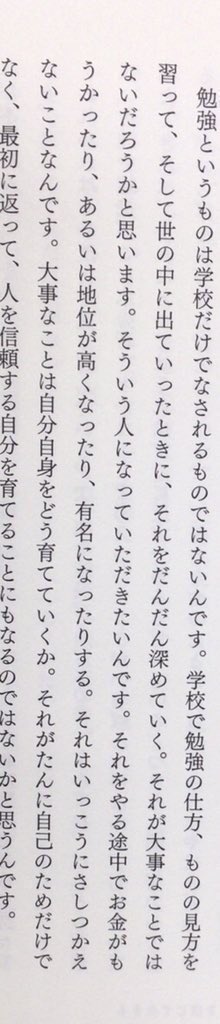 勉強というものは学校だけでなされるものではないんです。学校で勉強の仕方、ものの見方を
習って、そして世の中に出ていったときに、それをだんだん深めていく。それが大事なことでは
ないだろうかと思います。そういう人になっていただきたいんです。それをやる途中でお金がも
うかったり、あるいは地位が高くなったり、有名になったりする。それはいっこうにさしつかえ
ないことなんです。大事なことは自分自身をどう育てていくか。それがたんに自己のためだけで
なく、最初に返って、人を信頼する自分を育てることにもなるのではないかと思うんです。